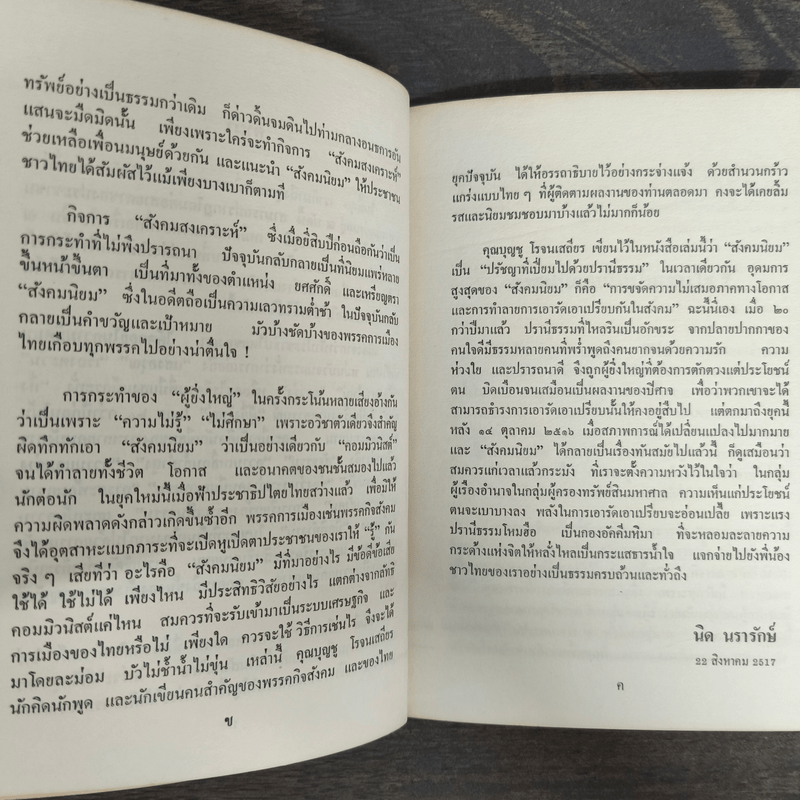 ทรัพย์อย่างเป็นธรรมกว่าเดิม ก็ด่าวดิ้นจมดินไปท่ามกลางอนธการอัน
แสนจะมืดมิดนั้น เพียงเพราะใคร่จะทำกิจการ “สังคมสงเคราะห์”
ช่วยเหลือเพื่อนมนุษย์ด้วยกัน และแนะนำ “สังคมนิยม” ให้ประชาชน
ชาวไทยได้สัมผัสไว้แม้เพียงบางเบาก็ตามที
กิจการ “สังคมสงเคราะห์” ซึ่งเมื่อยี่สิบปีก่อนถือกันว่าเป็น
การกระทำที่ไม่พึงปรารถนา ปัจจุบันกลับกลายเป็นที่นิยมแพร่หลาย
ขึ้นหน้าขึ้นตา เป็นที่มาทั้งของตำแหน่ง ยศศักดิ์ และเหรียญตรา
“สังคมนิยม” ซึ่งในอดีตถือเป็นความเลวทรามต่ำช้า ในปัจจุบันกลับ
กลายเป็นคำขวัญและเป้าหมาย มัวบ้างชัดบ้างของพรรคการเมือง
ไทยเกือบทุกพรรคไปอย่างน่าตื่นใจ !
การกระทำของ “ผู้ยิ่งใหญ่” ในครั้งกระโน้นหลายเสียงอ้างกัน
ว่าเป็นเพราะ “ความไม่รู้” “ไม่ศึกษา” เพราะอวิชชาตัวเดียวจึงสำคัญ
ผิดทึกทักเอา “สังคมนิยม” ว่าเป็นอย่างเดียวกับ “คอมมิวนิสต์”
จนได้ทำลายทั้งชีวิต โอกาส และอนาคตของชนชั้นสมองไปแล้ว
นักต่อนัก ในยุคใหม่นี้เมื่อฟ้าประชาธิปไตยไทยสว่างแล้ว เพื่อมิให้
ความผิดพลาดดังกล่าวเกิดขึ้นซ้ำอีก พรรคการเมืองเช่นพรรคกิจสังคม
จึงได้อุตสาหะแบกภาระที่จะเปิดหูเปิดตาประชาชนของเราให้ “รู้” กัน
จริง ๆ เสียที่ว่า อะไรคือ “สังคมนิยม” มีที่มาอย่างไร มีข้อดีข้อเสีย
ใช้ได้ ใช้ไม่ได้ เพียงไหน มีประสิทธิวิสัยอย่างไร แตกต่างจากลัทธิ
คอมมิวนิสต์แค่ไหน สมควรที่จะรับเข้ามาเป็นระบบเศรษฐกิจ และ
การเมืองของไทยหรือไม่ เพียงใด ควรจะใช้วิธีการเช่นไร จึงจะได้
มาโดยละม่อม บัวไม่ช้ำน้ำไม่ขุ่น เหล่านี้ คุณบุญชู โรจนเสถียร
นักคิดนักพูด และนักเขียนคนสำคัญของพรรคกิจสังคม และของไทย
ข
ยุคปัจจุบัน ได้ให้อรรถาธิบายไว้อย่างกระจ่างแจ้ง ด้วยสำนวนกร้าว
แกร่งแบบไทย ๆ ที่ผู้ติดตามผลงานของท่านตลอดมา คงจะได้เคยลิ้ม
รสและนิยมชมชอบมาบ้างแล้วไม่มากก็น้อย
คุณบุญชู โรจนเสถียร เขียนไว้ในหนังสือเล่มนี้ว่า “สังคมนิยม”
เป็น “ปรัชญาที่เปี่ยมไปด้วยปรานีธรรม” ในเวลาเดียวกัน อุดมการ
สูงสุดของ “สังคมนิยม” ก็คือ “การขจัดความไม่เสมอภาคทางโอกาส
และการทำลายการเอารัดเอาเปรียบกันในสังคม” ฉะนี้นี่เอง เมื่อ ๒๐
กว่าปีมาแล้ว ปรานีธรรมที่ไหลรินเป็นอักขระ จากปลายปากกาของ
คนใจดีมีธรรมหลายคนที่พร่ำพูดถึงคนยากจนด้วยความรัก ความ
ห่วงใย และปรารถนาดี จึงถูกผู้ยิ่งใหญ่ที่ต้องการตักตวงแต่ประโยชน์
ตน บิดเบือนจนเสมือนเป็นผลงานของปีศาจ เพื่อว่าพวกเขาจะได้
สามารถธำรงการเอารัดเอาเปรียบนั้นให้คงอยู่สืบไป แต่ตกมาถึงยุคนี้
หลัง ๑๔ ตุลาคม ๒๕๑๖ เมื่อสภาพการณ์ได้เปลี่ยนแปลงไปมากมาย
และ “สังคมนิยม” ได้กลายเป็นเรื่องทันสมัยไปแล้วนี้ ก็ดูเสมือนว่า
สมควรแก่เวลาแล้วกระมัง ที่เราจะตั้งความหวังไว้ในใจว่า ในกลุ่ม
ผู้เรืองอำนาจในกลุ่มผู้ครองทรัพย์สินมหาศาล ความเห็นแก่ประโยชน์
ตนจะเบาบางลง พลังในการเอารัดเอาเปรียบจะอ่อนเปลี้ย เพราะแรง
ปรานีธรรมโหมฮือ เป็นกองอัคคีมหิมา ที่จะหลอมละลายความ
กระด้างแห่งจิตให้หลั่งไหลเป็นกระแสธารน้ำใจ แจกจ่ายไปยังพี่น้อง
ชาวไทยของเราอย่างเป็นธรรมครบถ้วนและทั่วถึง
นิด นรารักษ์
22 สิงหาคม 2517
ค